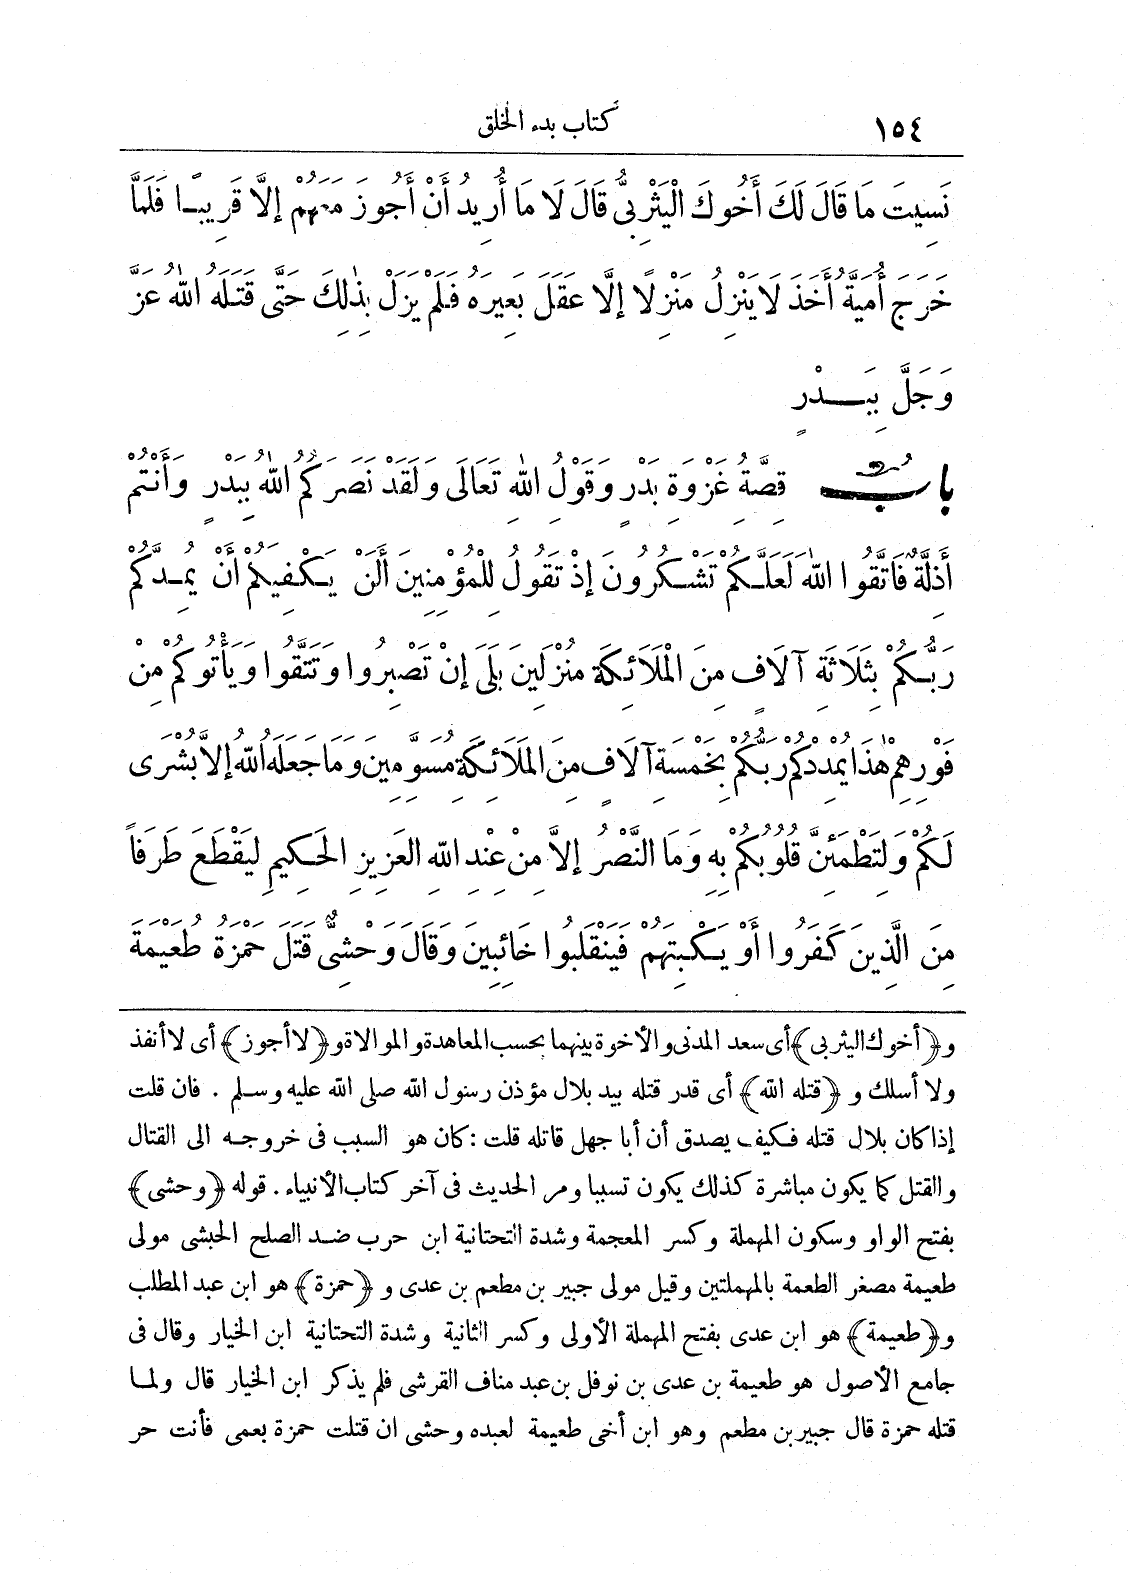 ١٥٤ كتاب بدء الخلق
نَسِيتَ مَا قَالَ لَكَ أَخُوكَ الْيَثْرِبِيُّ قَالَ لَا مَا أُرِيدُ أَنْ أَجُوزَ مَعَهُمْ إِلَّا قَرِيبًا فَلَمَّا
خَرَجَ أُمَيَّةُ أَخَذَ لَا يَنْزِلُ مَنْزِلًا إِلَّا عَقَلَ بَعِيرَهُ فَلَمْ يَزَلْ بِذٰلِكَ حَتَّى قَتَلَهُ اللهُ عَزَّ
وَجَلَّ بِبَدْرٍ
بابُ قِصَّةُ غَزْوَةِ بَدْرٍ وَقَوْلُ اللهِ تَعَالَى وَلَقَدْ نَصَرَكُمُ اللهُ بِبَدْرٍ وَأَنْتُمْ
أَذِلَّةٌ فَاتَّقُوا اللهَ لَعَلَّكُمْ تَشْكُرُونَ إِذْ تَقُولُ لِلْمُؤْمِنِينَ أَلَنْ يَكْفِيَكُمْ أَنْ يُمِدَّكُمْ
رَبُّكُمْ بِثَلَاثَةِ آلَافٍ مِنَ الْمَلَائِكَةِ مُنْزَلِينَ بَلَى إِنْ تَصْبِرُوا وَتَتَّقُوا وَيَأْتُوكُمْ مِنْ
فَوْرِهِمْ هٰذَا يُمْدِدْكُمْ رَبُّكُمْ بِخَمْسَةِ آلَافٍ مِنَ الْمَلَائِكَةِ مُسَوِّمِينَ وَمَا جَعَلَهُ اللهُ إِلَّا بُشْرَى
لَكُمْ وَلِتَطْمَئِنَّ قُلُوبُكُمْ بِهِ وَمَا النَّصْرُ إِلَّا مِنْ عِنْدِ اللهِ العَزِيزِ الحَكِيمِ لِيَقْطَعَ طَرَفًا
مِنَ الَّذِينَ كَفَرُوا أَوْ يَكْبِتَهُمْ فَيَنْقَلِبُوا خَائِبِينَ وَقَالَ وَحْشِيٌّ قَتَلَ حَمْزَةُ طُعَيْمَةَ
و﴿أخوك اليثربى﴾ أى سعد المدنى والأخوة بينهما بحسب المعاهدة والموالاة و﴿لا أجوز﴾ أى لا أنفذ
ولا أسلك و ﴿قتله الله﴾ أى قدر قتله بيد بلال مؤذن رسول الله صلى الله عليه وسلم . فان قلت
إذا كان بلال قتله فكيف يصدق أن أبا جهل قاتله قلت : كان هو السبب فى خروجه الى القتال
والقتل كما يكون مباشرة كذلك يكون تسببا ومر الحديث فى آخر كتاب الأنبياء . قوله ﴿وحشى﴾
بفتح الواو وسكون المهملة وكسر المعجمة وشدة التحتانية ابن حرب ضد الصلح الحبشى مولى
طعيمة مصغر الطعمة بالمهملتين وقيل مولى جبير بن مطعم بن عدى و ﴿حمزة﴾ هو ابن عبد المطلب
و﴿طعيمة﴾ هو ابن عدى بفتح المهملة الأولى وكسر الثانية وشدة التحتانية ابن الخيار وقال فى
جامع الأصول هو طعيمة بن عدى بن نوفل بن عبد مناف القرشى فلم يذكر ابن الخيار قال ولما
قتله حمزة قال جبير بن مطعم وهو ابن أخى طعيمة لعبده وحشى ان قتلت حمزة بعمى فأنت حر